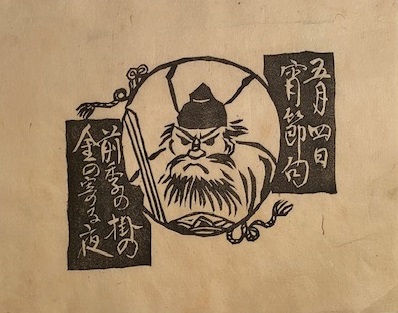 五月四日
宵節句
前季の掛の
金の寄る夜